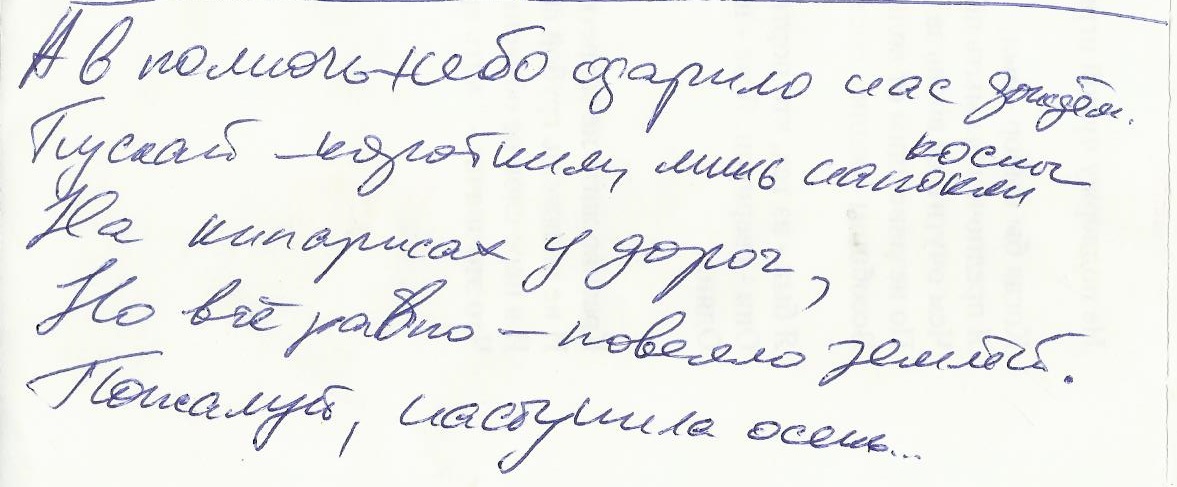 А в полночь небо одарило нас дождём.
Пускай – коротким, лишь намокли космы
На кипарисах у дорог,
Но всё равно – повеяло землёй.
Пожалуй, наступила осень...